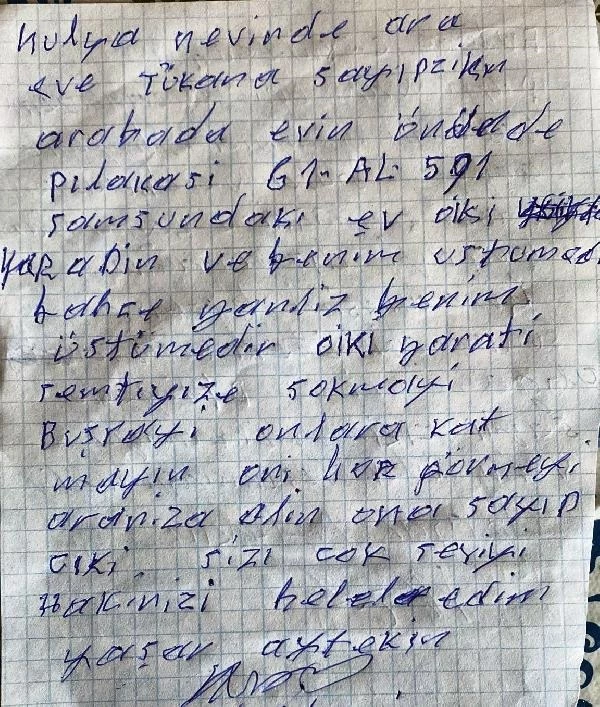 hulya nevinde ara
eve Tükana sayıpzikın
arabada evin önüdade
pılakasi 61-AL 591
samsundakı ev oiki
yaradin ve benim ustumed
bahçe yanlız benim
üstümedir oikı yarati
semtiyize sokmayi
Buşrayi onlara kat
mayın oni hor görmeyi
araniza alin ona sayıp
cıki sizi cok seviyi
Hakınizi helel edim
yaşar aytekin